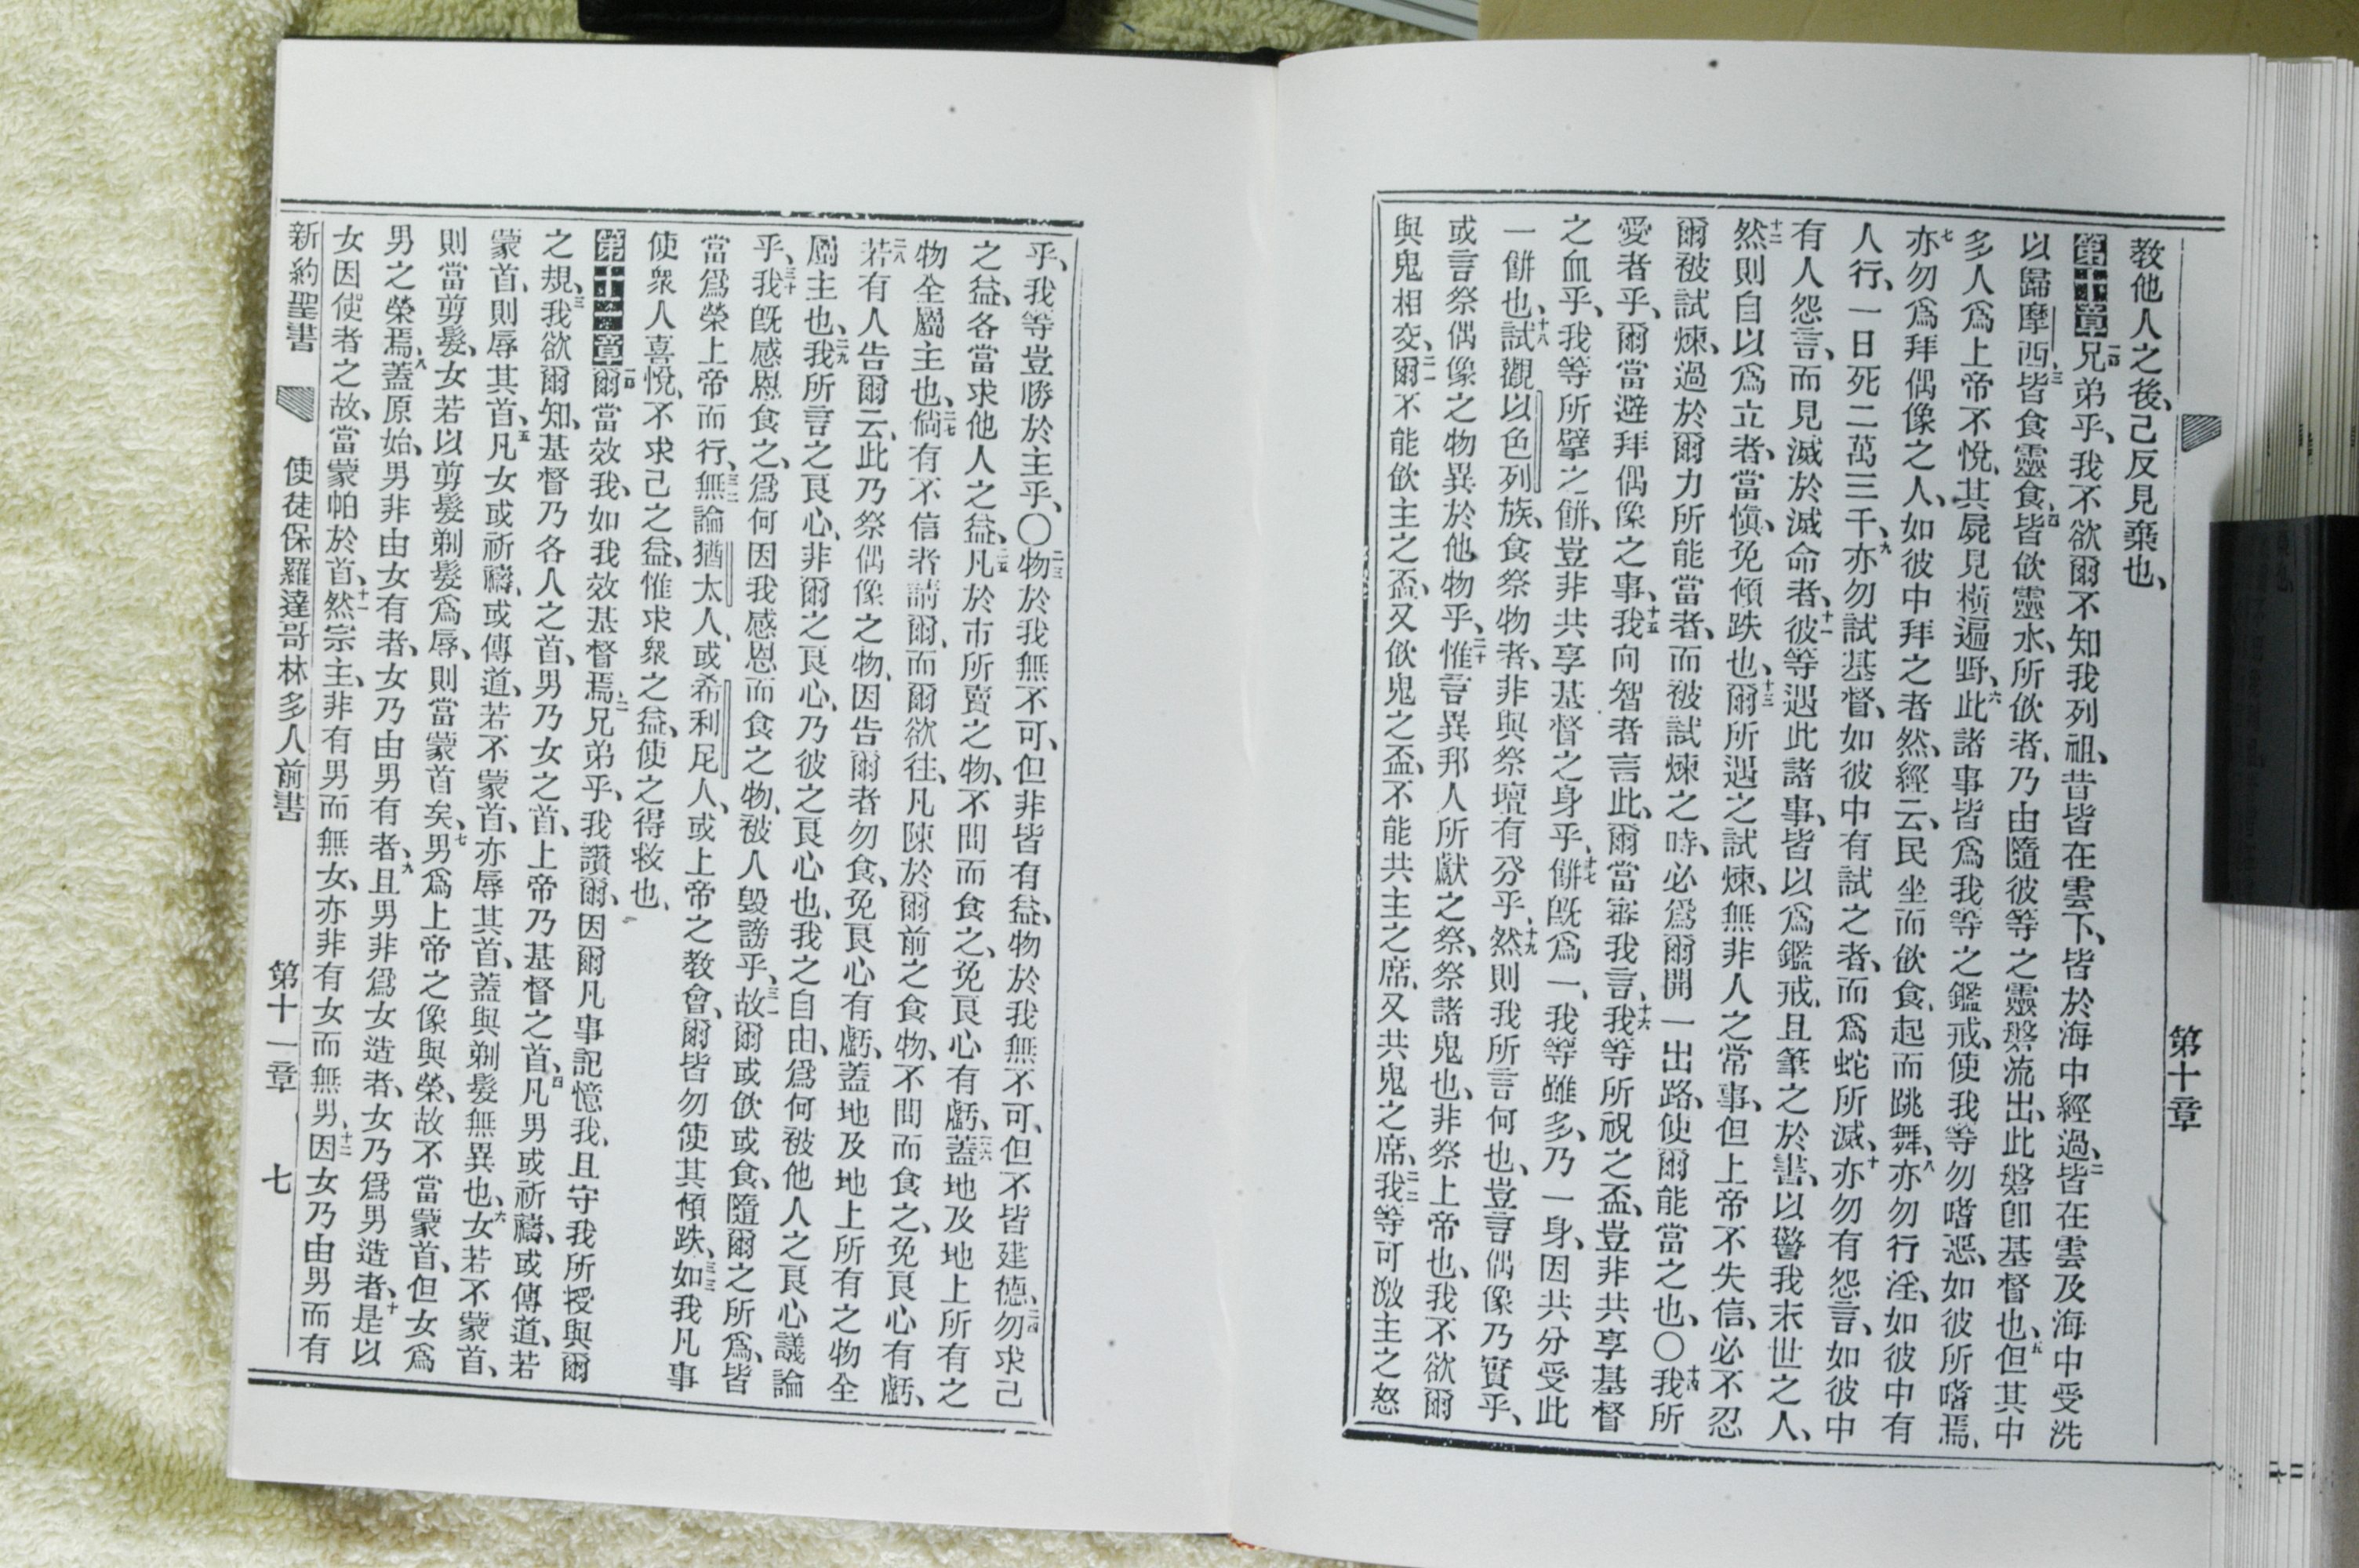 第十章
教他人之後、己反見棄也、
第十章一兄弟乎、我不欲爾不知我列祖、昔皆在雲下、皆於海中經過、二皆在雲及海中受洗
以歸摩西、三皆食靈食、四皆飲靈水、所飲者、乃由隨彼等之靈磐流出、此磐卽基督也、五但其中
多人爲上帝不悅、其屍見橫遍野、六此諸事皆爲我等之鑑戒、使我等勿嗜惡、如彼所嗜焉、
七亦勿爲拜偶像之人、如彼中拜之者然、經云、民坐而飲食、起而跳舞、八亦勿行淫、如彼中有
人行、一日死二萬三千、九亦勿試基督、如彼中有試之者、而爲蛇所滅、十亦勿有怨言、如彼中
有人怨言、而見滅於滅命者、十一彼等遇此諸事、皆以爲鑑戒、且筆之於書、以警我末世之人、
十二然則自以爲立者、當愼、免傾跌也、十三爾所遇之試煉、無非人之常事、但上帝不失信、必不忍
爾被試煉、過於爾力所能當者、而被試煉之時、必爲爾開一出路、使爾能當之也、〇十四我所
愛者乎、爾當避拜偶像之事、十五我向智者言此、爾當審我言、十六我等所祝之盃、豈非共享基督
之血乎、我等所擘之餅、豈非共享基督之身乎、十七餅旣爲一、我等雖多、乃一身、因共分受此
一餅也、十八試觀以色列族、食祭物者、非與祭壇有分乎、十九然則我所言何也、豈言偶像乃實乎、
或言祭偶像之物異於他物乎、二十惟言異邦人所獻之祭、祭諸鬼也、非祭上帝也、我不欲爾
與鬼相交、二一爾不能飲主之盃、又飲鬼之盃、不能共主之席、又共鬼之席、二二我等可激主之怒
乎、我等豈勝於主乎、〇二三物於我無不可、但非皆有益、物於我無不可、但不皆建德、二四勿求己
之益、各當求他人之益、二五凡於市所賣之物、不問而食之、免良心有虧、二六蓋地及地上所有之
物全屬主也、二七倘有不信者請爾、而爾欲往、凡陳於爾前之食物、不問而食之、免良心有虧、
二八若有人告爾云、此乃祭偶像之物、因告爾者勿食、免良心有虧、蓋地及地上所有之物全
屬主也、二九我所言之良心、非爾之良心、乃彼之良心也、我之自由、爲何被他人之良心議論
乎、三十我旣感恩食之、爲何因我感恩而食之物、被人毀謗乎、三一故爾或飲或食、隨爾之所爲、皆
當爲榮上帝而行、三二無論猶太人、或希利尼人、或上帝之敎會、爾皆勿使其傾跌、三三如我凡事
使衆人喜悅、不求己之益、惟求衆之益、使之得救也、
第十一章一爾當效我、如我效基督焉、二兄弟乎、我讚爾、因爾凡事記憶我、且守我所授與爾
之規、三我欲爾知、基督乃各人之首、男乃女之首、上帝乃基督之首、四凡男或祈禱、或傳道、若
蒙首、則辱其首、五凡女或祈禱、或傳道、若不蒙首、亦辱其首、蓋與剃髮無異也、六女若不蒙首、
則當剪髮、女若以剪髮剃髮爲辱、則當蒙首矣、七男爲上帝之像與榮、故不當蒙首、但女爲
男之榮焉、八蓋原始、男非由女有者、女乃由男有者、九且男非爲女造者、女乃爲男造者、十是以
女因使者之故、當蒙帕於首、十一然宗主、非有男而無女、亦非有女而無男、十二因女乃由男而有
新約聖書　使徒保羅達哥林多人前書　第十一章　七